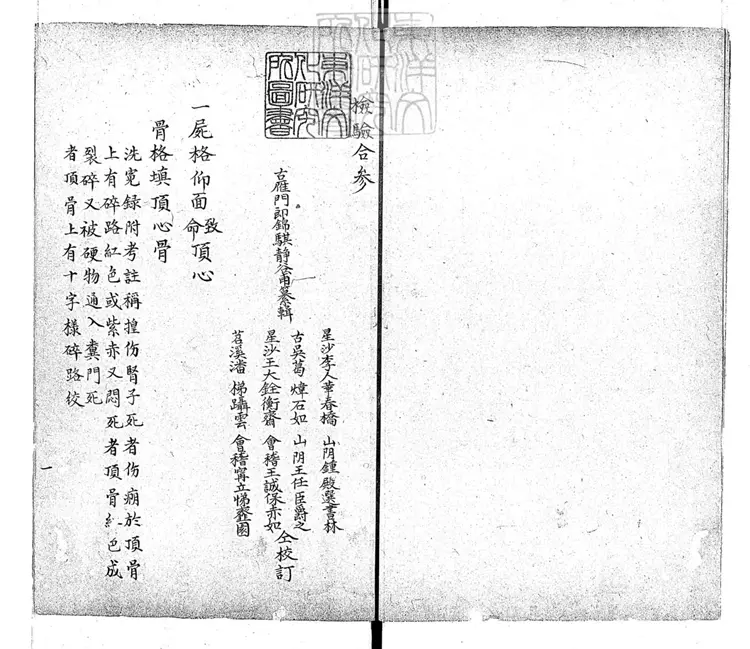 東洋文化研究所圖書
檢驗合参
古雁門郎錦騏静谷甫纂輯
星沙李人華春橋 山阴鍾殿選書林
古吳葛 煒石如 山阴王任臣爵之
星沙王大銓衡齋 會稽王誠保赤如
苕溪潘 梯躡雲 會稽甯立悌
仝校訂
一屍格仰面致命頂心
骨格填頂心骨
洗寃録附考註稱揑伤腎子死者伤痕於頂骨
上有碎路紅色或紫赤又悶死者頂骨紅色成
裂碎又被硬物通入糞門死
者頂骨上有十字樣碎路佼
一